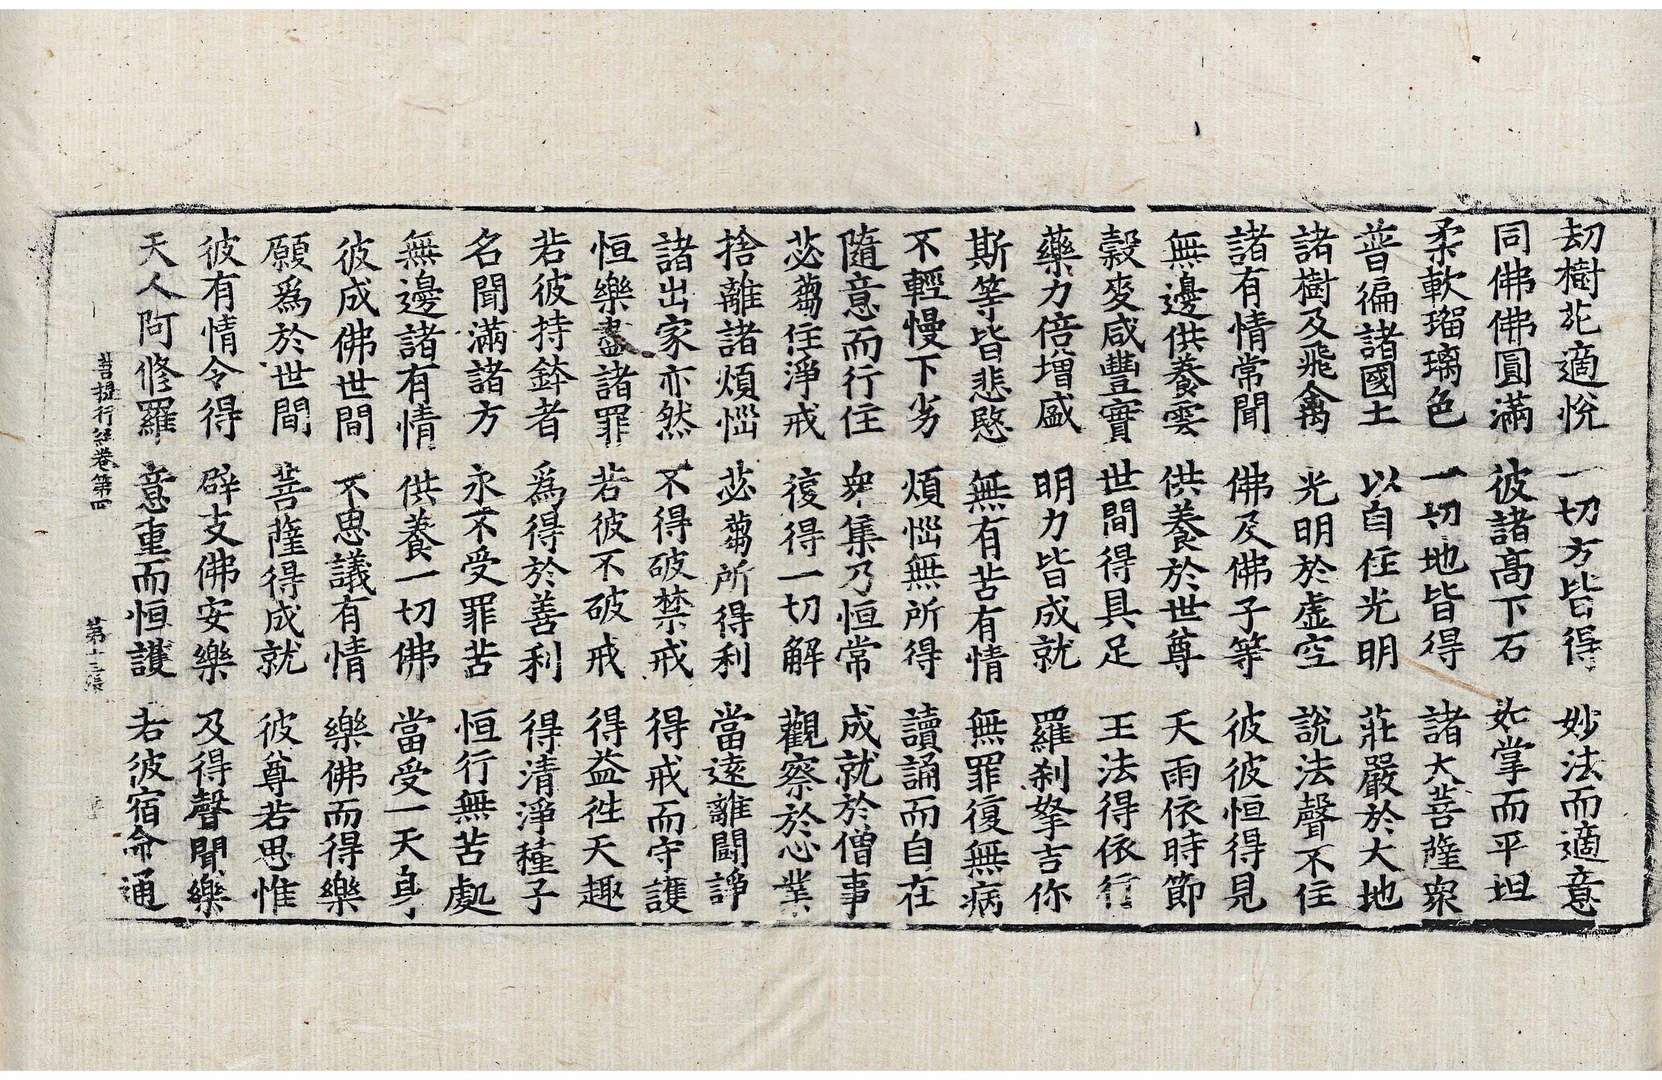 劫樹苑適悅 一切方皆得 妙法而適意
同佛佛圓滿 彼諸髙下石 如掌而平坦
柔軟瑠璃色 一切地皆得 諸大菩薩衆
普徧諸國土 以自住光明 莊嚴於大地
諸樹及飛禽 光明於虛空 說法聲不住
諸有情常聞 佛及佛子等 彼彼恒得見
無邊供養雲 供養於世尊 天雨依時節
穀麥咸豐實 世間得具足 王法得依行
藥力倍增盛 明力皆成就 羅剎拏吉你
斯等皆悲愍 無有苦有情 無罪復無病
不輕慢下劣 煩惱無所得 讀誦而自在
隨意而行住 衆集乃恒常 成就於僧事
苾蒭住淨戒 復得一切解 觀察於心業
捨離諸煩惱 苾蒭所得利 當遠離鬪諍
諸出家亦然 不得破禁戒 得戒而守護
恒樂盡諸罪 若彼不破戒 得益徃天趣
若彼持鉢者 爲得於善利 得清淨種子
名聞滿諸方 永不受罪苦 恒行無苦處
無邊諸有情 供養一切佛 當受一天身
彼成佛世間 不思議有情 樂佛而得樂
願爲於世間 菩薩得成就 彼尊若思惟
彼有情令得 辟支佛安樂 及得聲聞樂
天人阿修羅 意重而恒護 若彼宿命通
菩提行經卷第四 第十三張